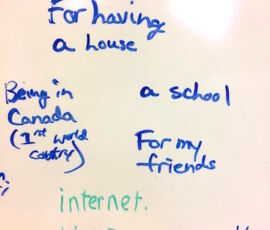 For having
a house
Being in
Canada
(1st world
country)
a school
For my
friends
internet.